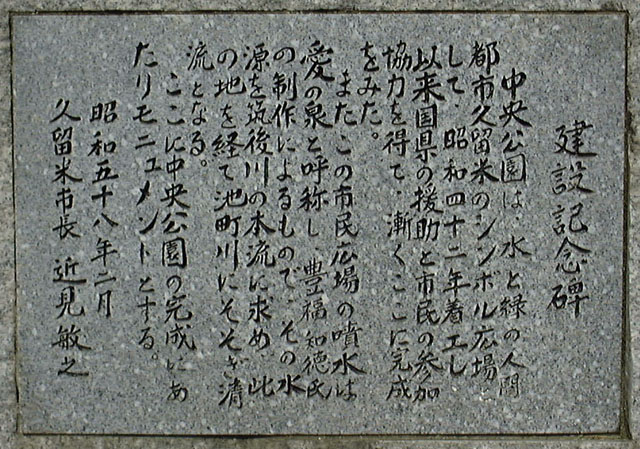 建設記念碑
中央公園は、水と緑の人間
都市久留米のシンボル広場
として、昭和四十二年着工し
以来国県の援助と市民の参加
協力を得て、漸くここに完成
をみた。
また、この市民広場の噴水は
愛の泉と呼称し、豊福知徳氏
の制作によるもので、その水
源を筑後川の本流に求め、此
の地を経て池町川にそそぎ清
流となる。
ここに中央公園の完成にあ
たりモニュメントとする。
昭和五十八年二月
久留米市長 近見敏之